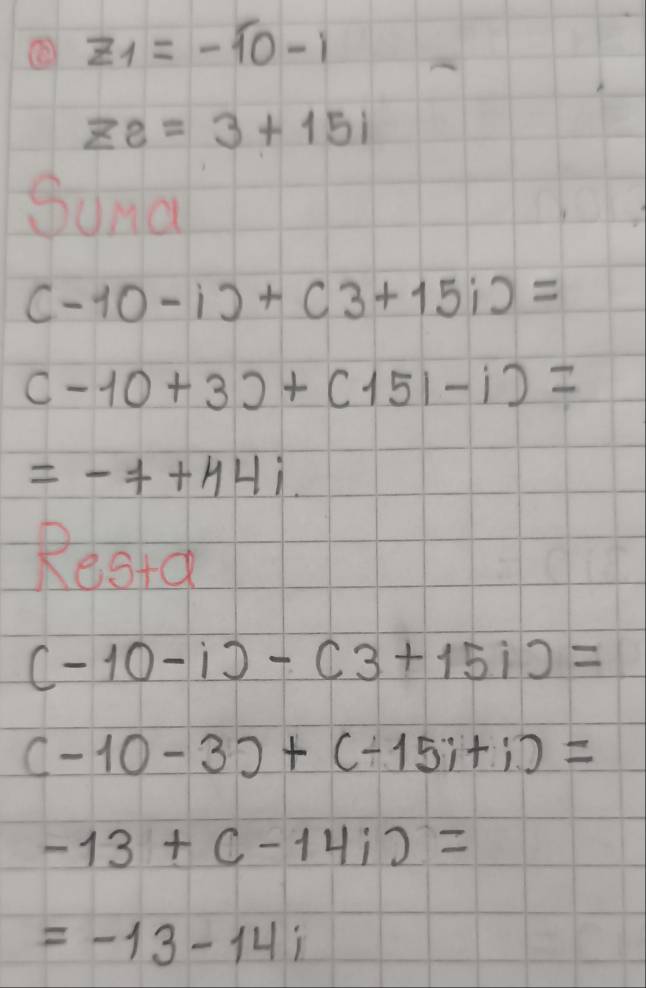 a) z1 = -10 - i
z2 = 3 + 15i
Suma
(-10 - i) + (3 + 15i) =
(-10 + 3) + (15i - i) =
= -7 + 14i.
Resta
(-10 - i) - (3 + 15i) =
(-10 - 3) + (-15i + i) =
-13 + (-14i) =
= -13 - 14i